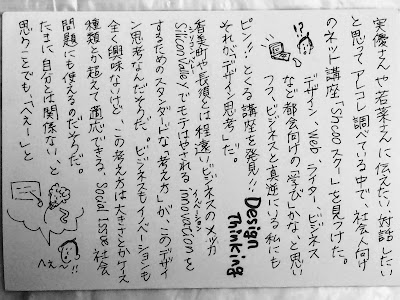 実優さんや若菜さんに伝えたい、対話したい
と思って、アレコレ調べている中で、社会人向け
のネット講座「Schooスクー」を見つけた。
デザイン、Webライター、ビジネス
など都会向けの"学び"かな、と思い
フフ、ビジネスと真逆にいる私にも
ピン!!とくる講座を発見!!
Design Thinking
それが「デザイン思考」だ。
香美町や長須とは程遠いビジネスのメッカ
Silicon Valleyでモテはやされるinnovationを
シリコンバレー
イノベーション
するためのスタンダードな"考え方"が、このデザイ
ン思考なんだそうだ。ビジネスもイノベーションも
全く興味ないけど、この考え方は大きさとかケース
種類とか超えて適応できる。Social Issue 社会
問題にも使えるのだそうだ。
たまに、自分とは関係ない、と
思うことでも、「へぇー」と
へぇ〜!!
!?